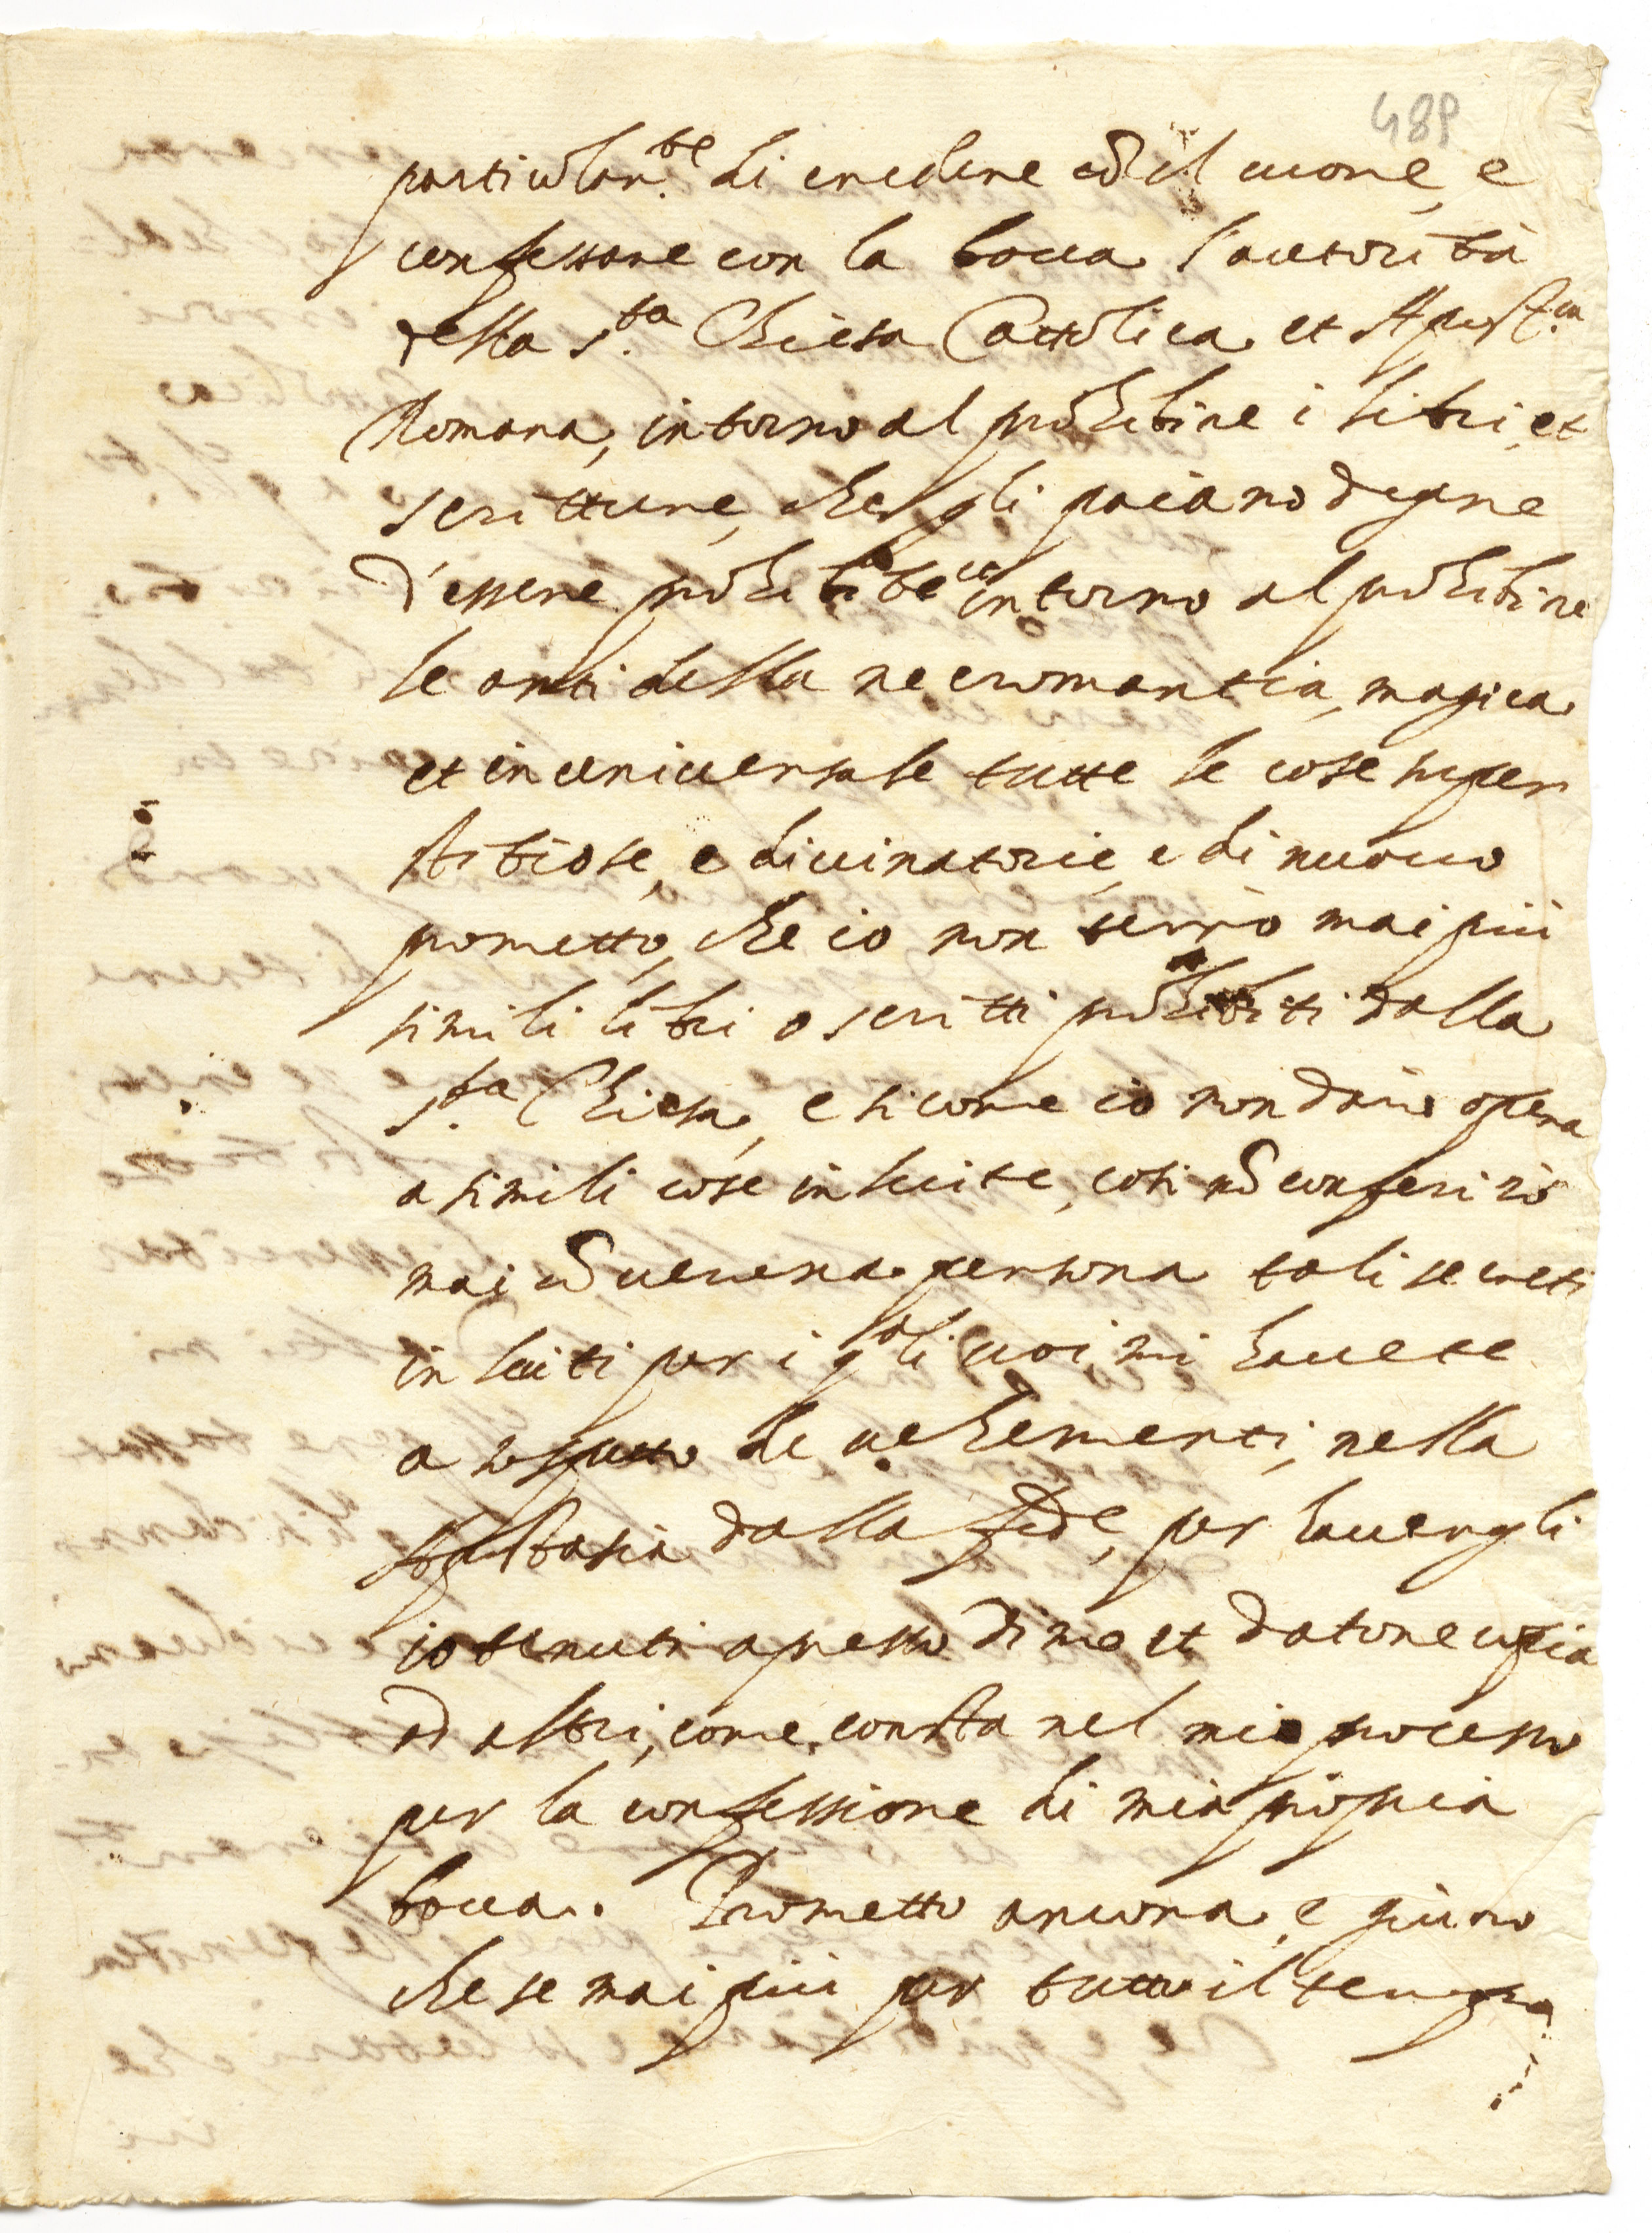 489
particolar.te di credere cō il cuore, e
confessare con la bocca l'auctorità
della s.ta Chiesa Cattolica et Apost.ca
Romana, intorno al prohibire i libri, et
scritture, che gli paiano degne
d'essere prohibite et intorno al prohibire
le arti della necromantia, magica
et in universale tutte le cose super
stitiose, e divinatorie, e di nuovo
prometto, che io non terrò mai più
simili libri o scritti prohibiti dalla
s.ta Chiesa, e sicome io non darò opera
a simili cose in lecite, cosi nō conferirò
mai cō veruna persona tali secreti
in leciti per i q.ali voi mi havete
a sospetto de vehementi, nella
Apostasia dalla fede, per havergli
io tenuti apresso di me et datone copia
ad altri, come consta nel mio processo
per la confessione di mia propria
bocca. Prometto ancora, e giuro
che se mai più per tutto il tempo